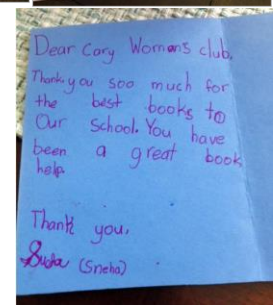 Dear Cary Womans club,
Thank you soo much for
the best books to
Our school. You have
been a great book
help.
Thank you,
(Sneha)